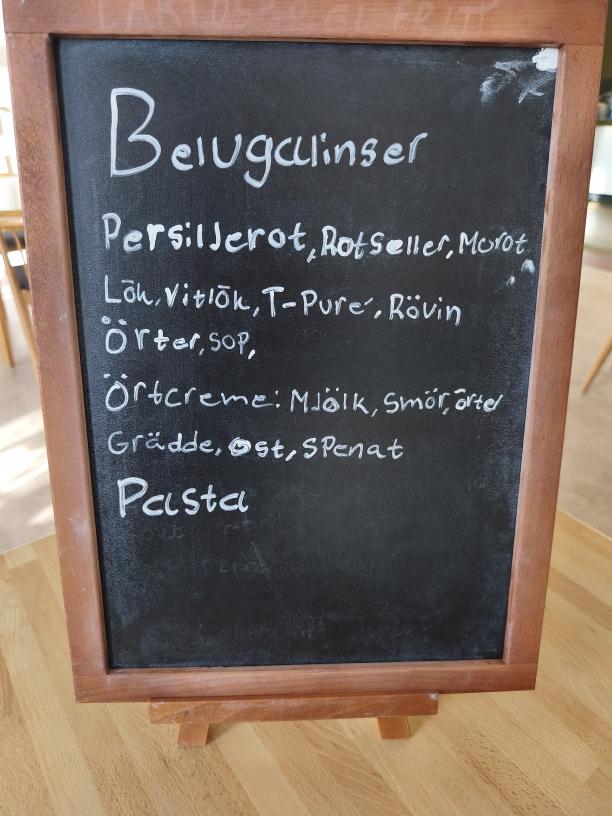 Belugalinser
Persillerot, Rotseller, Morot
Lök, Vitlök, T-Puré, Rövin
Örter, SOP,
Örtcreme: Mjölk, Smör, örter
Grädde, Ost, Spenat
Pasta